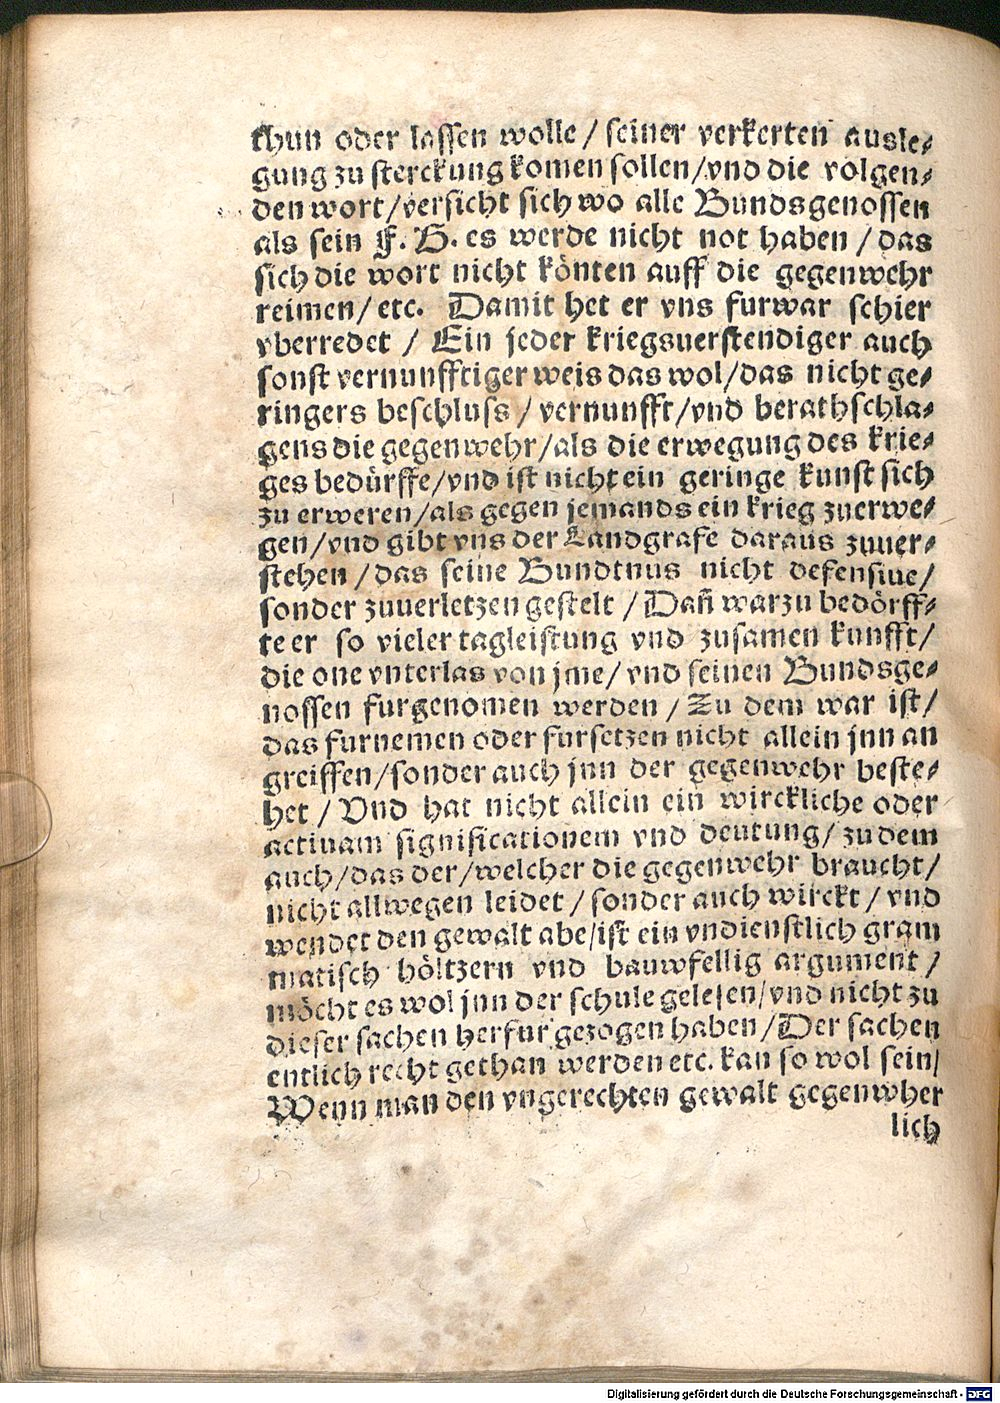 thun oder lassen wolle / seiner verkerten ausle⸗
gung zu sterckung komen sollen/vnd die volgen⸗
den wort/versicht sich wo alle Bundsgenossen
als sein F. G. es werde nicht not haben / das
sich die wort nicht könten auff die gegenwehr
reimen/ etc. Damit het er vns furwar schier
vberredet / Ein jeder kriegsuerstendiger auch
sonst vernunfftiger weis das wol/das nicht ge⸗
ringers beschluss / vernunfft/vnd berathschla⸗
gens die gegenwehr/als die erwegung des krie⸗
ges bedürffe/vnd ist nicht ein geringe kunst sich
zu erweren/als gegen jemands ein krieg zuerwe⸗
gen/vnd gibt vns der Landgrafe daraus zuuer⸗
stehen / das seine Bundtnus nicht defensiue/
sonder zuuerletzen gestelt / Dañ warzu bedörff⸗
te er so vieler tagleistung vnd zusamen kunfft/
die one vnterlas von jme/ vnd seinen Bundsge⸗
nossen furgenomen werden / Zu dem war ist/
das furnemen oder fursetzen nicht allein jnn an
greiffen/sonder auch jnn der gegenwehr beste⸗
het / Vnd hat nicht allein ein wirckliche oder
actiuam significationem vnd deutung/ zu dem
auch/das der/welcher die gegenwehr braucht/
nicht allwegen leidet / sonder auch wirckt / vnd
wendet den gewalt abe/ist ein vndienstlich gram
matisch höltzern vnd bauwfellig argument /
möcht es wol jnn der schule gelesen/vnd nicht zu
dieser sachen herfur gezogen haben/Der sachen
entlich recht gethan werden etc. kan so wol sein/
Wenn man den vngerechten gewalt gegenwher
lich
Digitalisierung gefördert durch die Deutsche Forschungsgemeinschaft - DFG